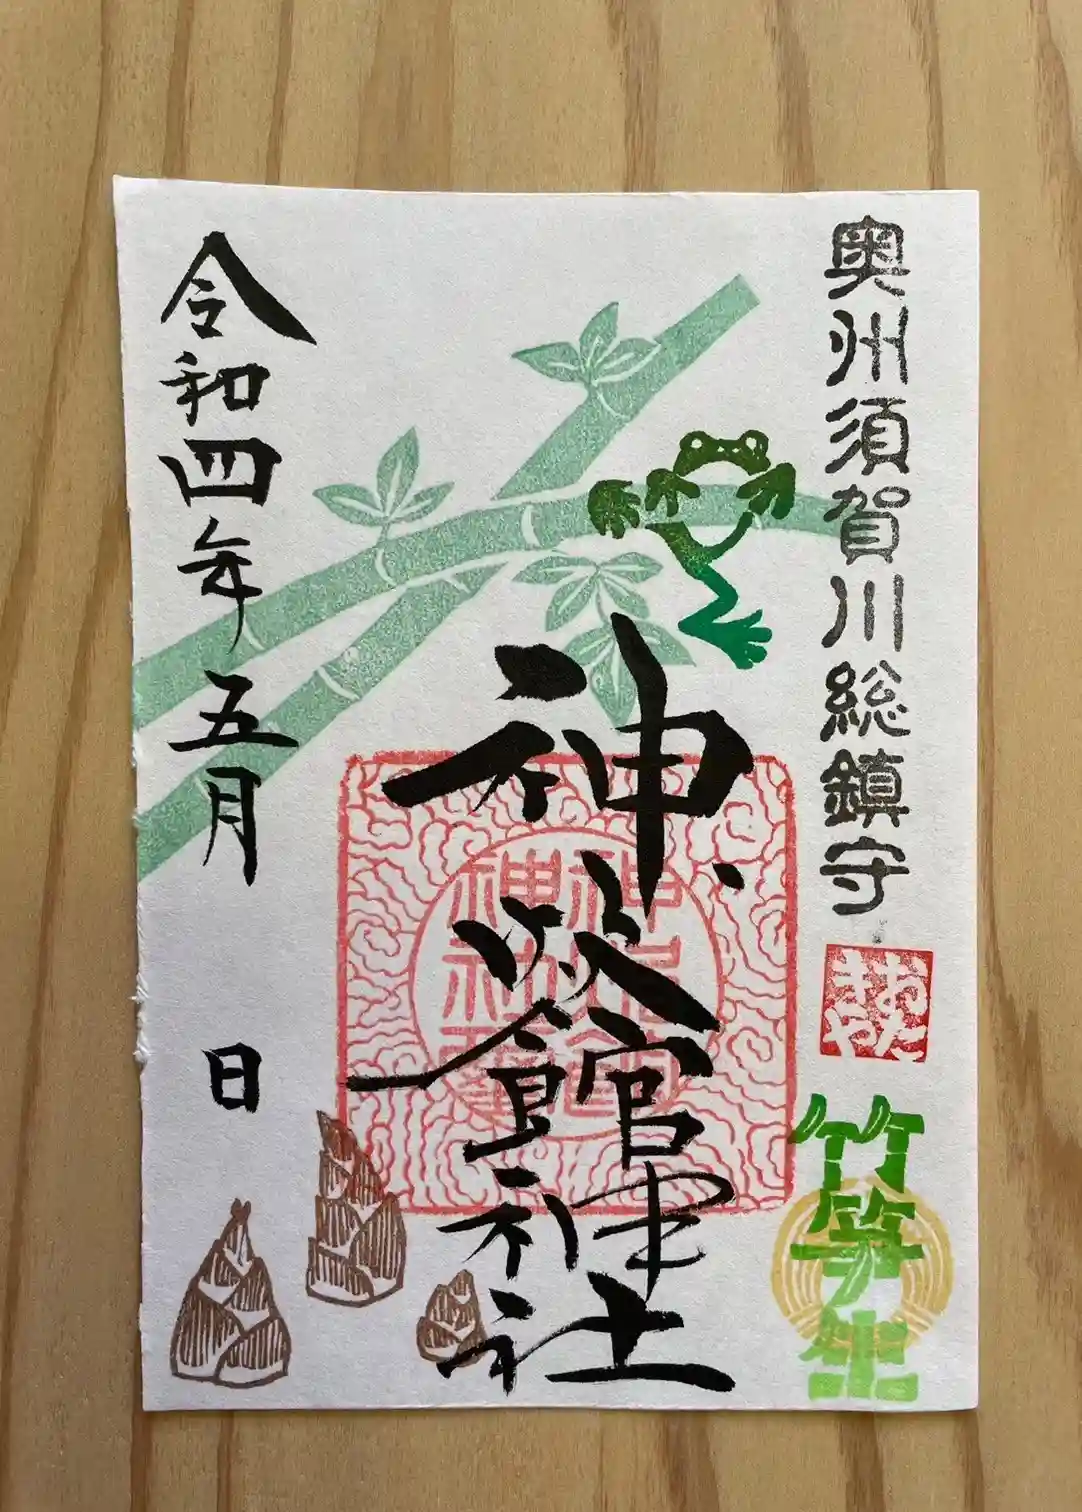 奥州須賀川総鎮守
おたきや
竹笋生
神炊館神社
神炊館
神社璽
令和四年五月 日